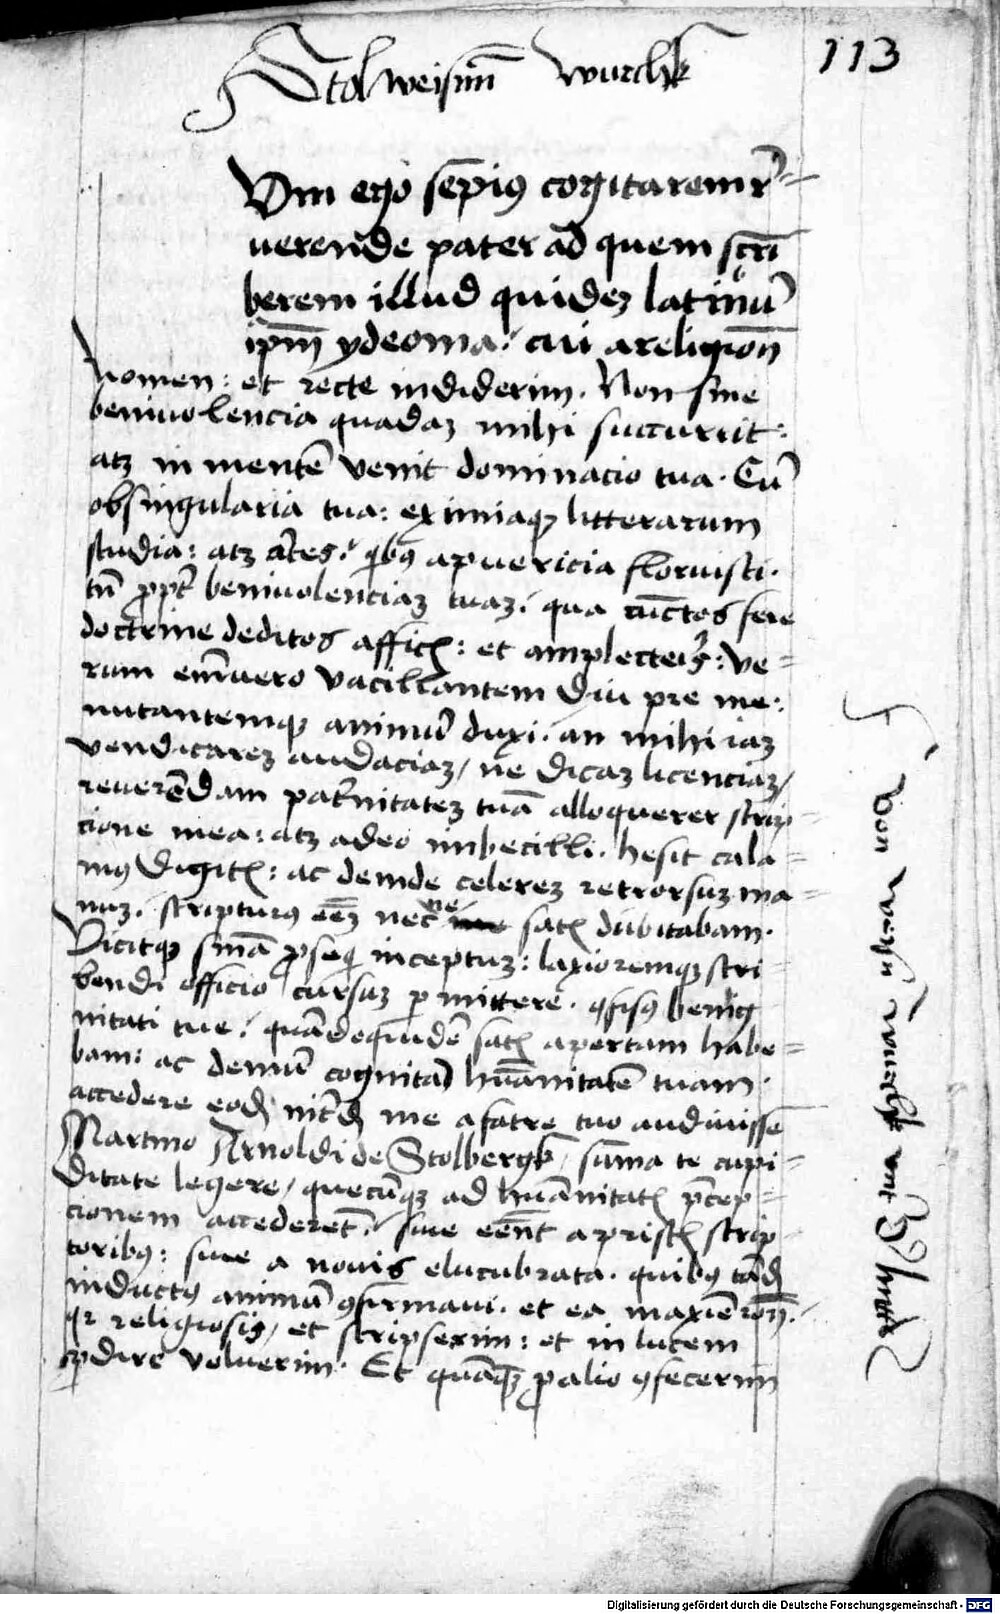 113
Vm ego sepius cogitarem r=
uerende pater ad quem scri
berem illud quidez latinu
ipm ydeoma: cui a religion
nomen: et recte indiderim. Non sine
beniuolencia quadaz mihi succurrit:
atz in mentē venit dominacio tua. Cū
ob singularia tua: eximiaqz litterarum
studia: atz artes: qbus a puericia floruisti.
tū propt beniuolenciaz tuaz: qua cūctos fere
doctrine deditos afficis: et amplecteris: Ve=
rum em̄vero vacillantem diu pre me:
nutantemqz animū duxi. an mihi iaz
vendicarez audaciaz / ne dicaz licenciaz /
reuerēdam paternitatez tuā alloquerer scrip=
cione mea: atz adeo imbecilli. hesit cala=
mus digitis: ac deinde celerez retrorsuz ma=
nuz. scripturus eēz nec ne satis dubitabam.
Vicitqz sniam prosequi inceptuz: laxioremqz scri=
bendi officio cursuz permittere. confisus benig
nitati tue: quā dequidē satis apertam habe=
bam: ac demū cognitā humanitatē tuam.
accedere eodem me a fratre tuo audiuissē
Martino Arnoldi de Stolbergk / suma te cupi=
ditate legere / quecūqz ad humanitatis precep=
cionem accederēt: siue essent a priscis scrip=
toribus: siue a nouis elucubrata. quibus tādem
inductus animū confirmaui. et ea maxime
religiosis / et scripserim: et in lucem
edire voluerim. Et quāqz pro alio confecerim